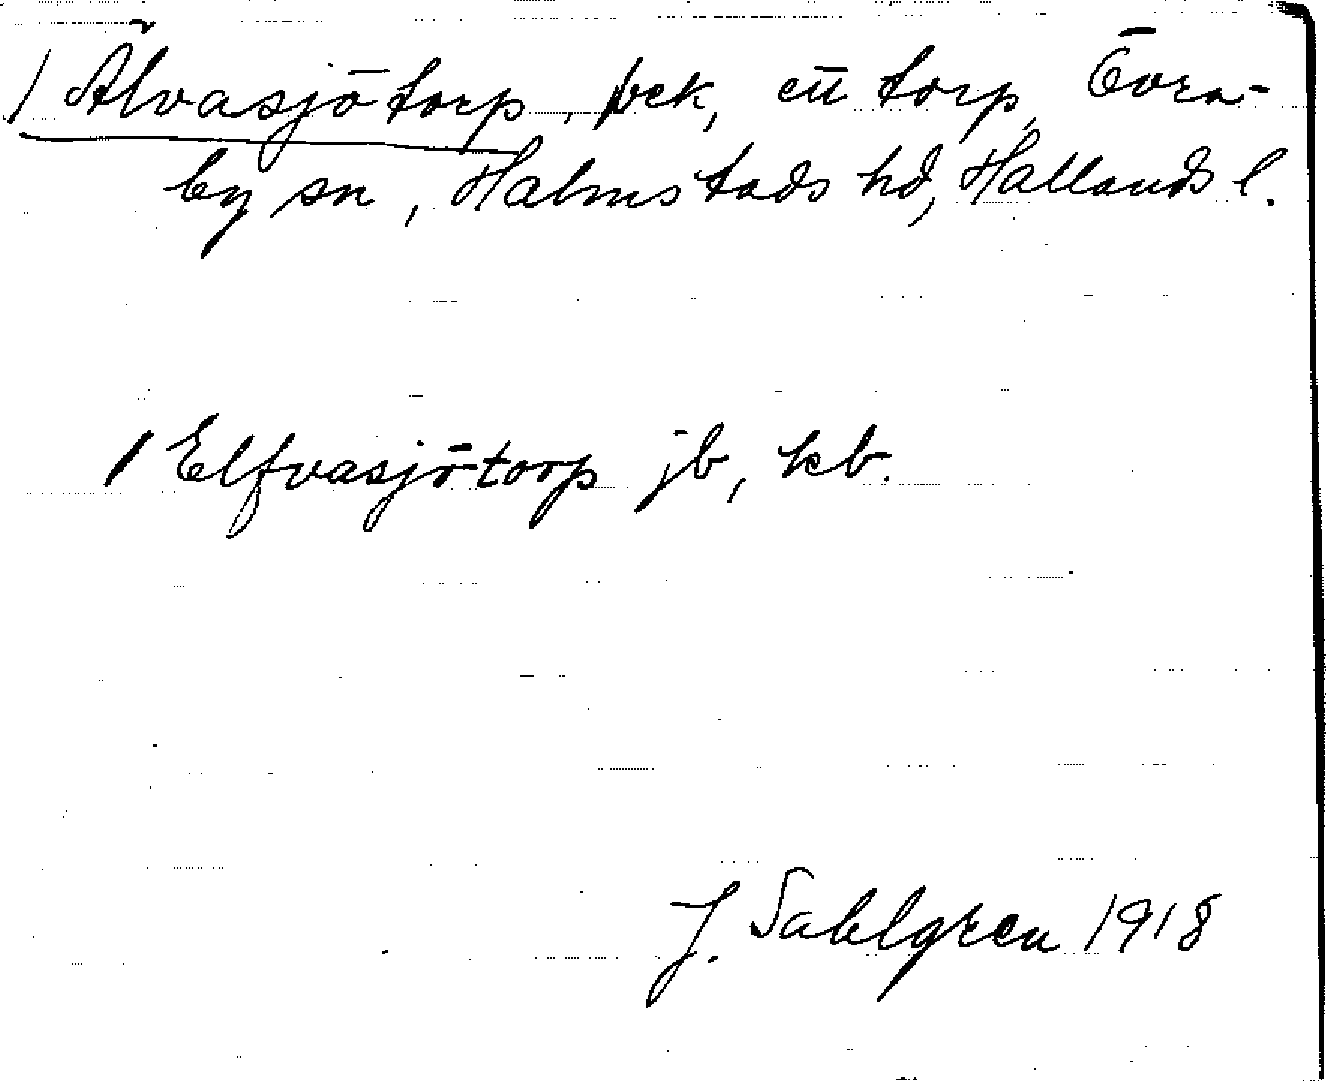 / Älvasjötorp, bek, cū torp, Övra-
by sn, Halmstads hd, Hallands l.
/ Elfvasjötorp jb, kb.
J. Sahlgren 1918